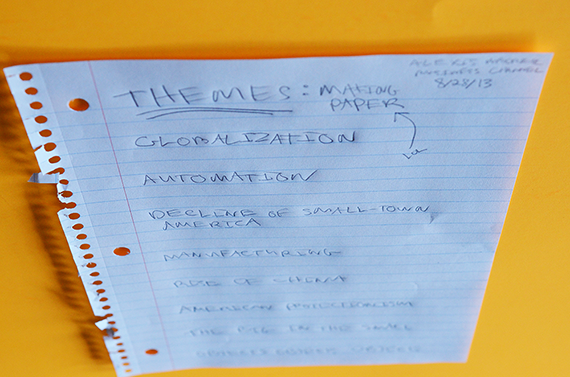 ALEXIS
BUSINESS CHANNEL
8/28/13
THEMES: MAKING
PAPER
LOL
GLOBALIZATION
AUTOMATION
DECLINE OF SMALL-TOWN
AMERICA
MANUFACTURING
RISE OF CHINA
AMERICAN PROTECTIONISM
THE BIG IN THE SMALL